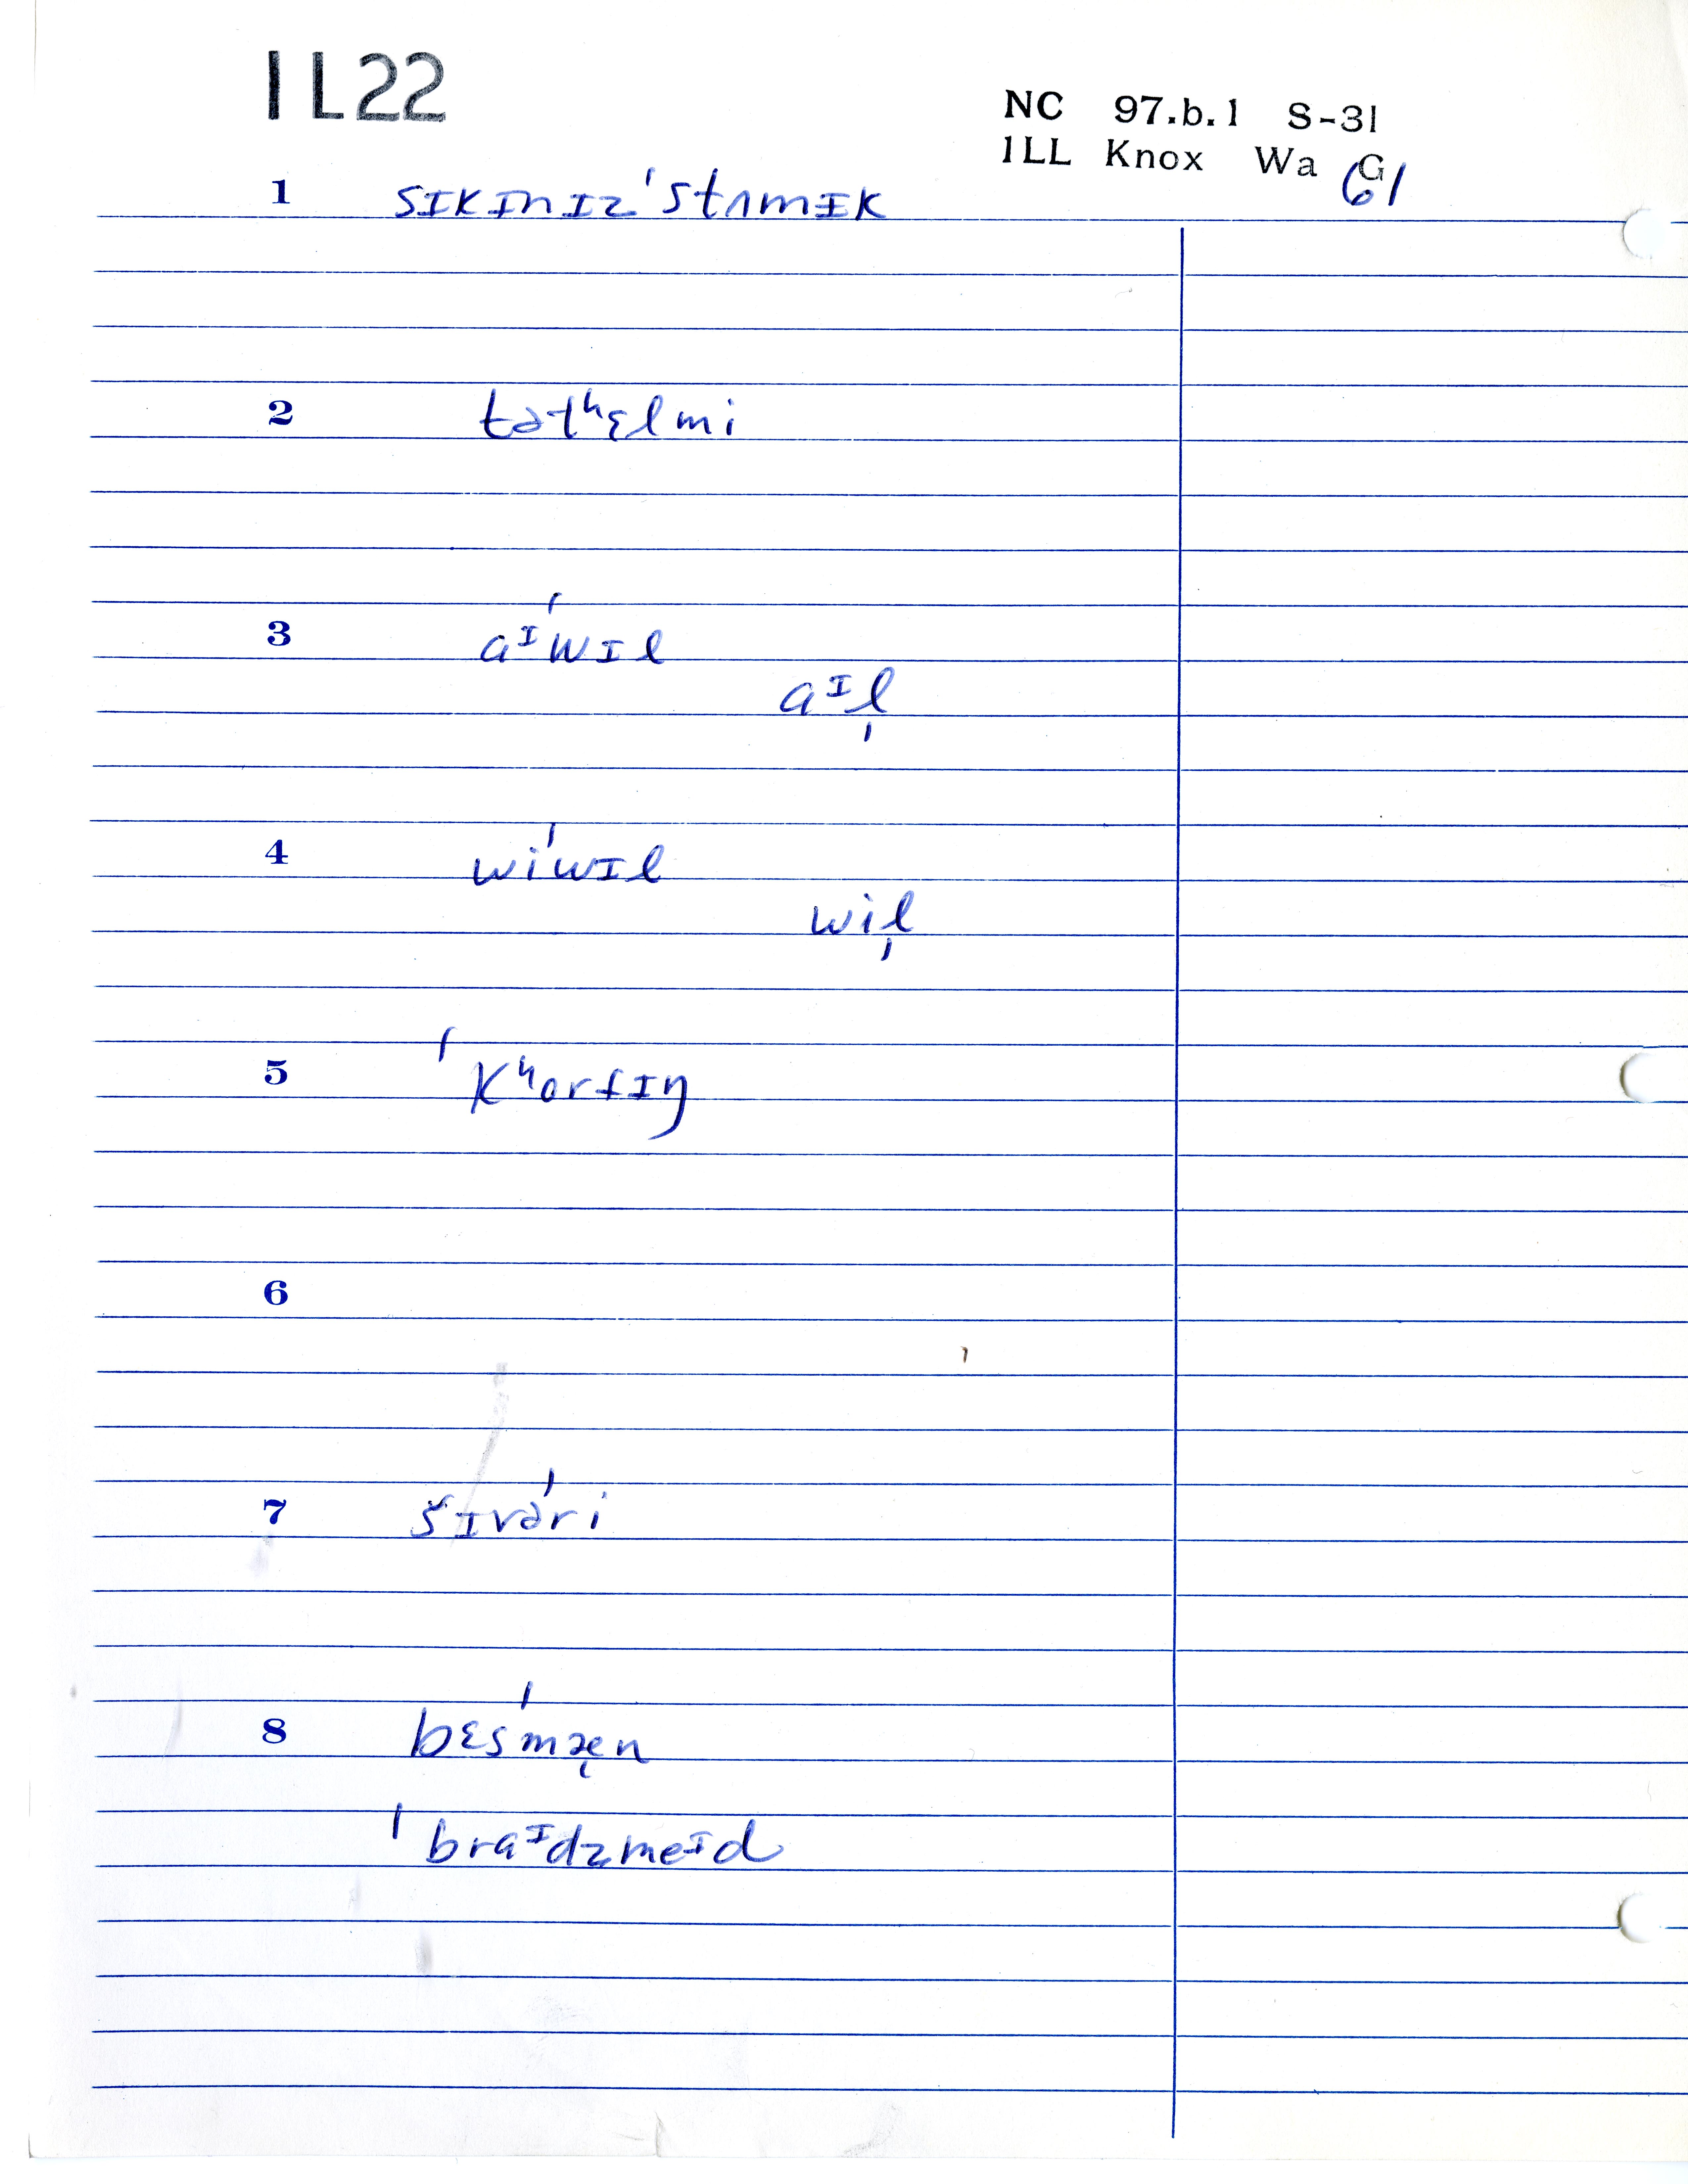 IL22
NC 97.b.1 S-31
ILL Knox Wa G 61
1 sɪkɪnɪz'stʌmɪk
2 tətʰɛlmi
3 aᴵ'wɪl
aᴵl̩
4 wi'wɪl
wil̩
5 'kʰorfɪŋ
6
7 šɪvə'ri
8 bɛs'mæ̜n
'braᴵdzmeᴵd